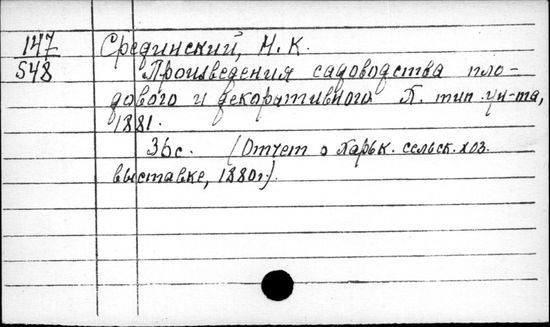 147
548
Срединский, Н. К.
Произведения садоводства пло-
дового и декоративного Х. тип. ун-та,
1881.
36с. (Отчет о Харьк. сельск. хоз.
выставке, 1880г.).